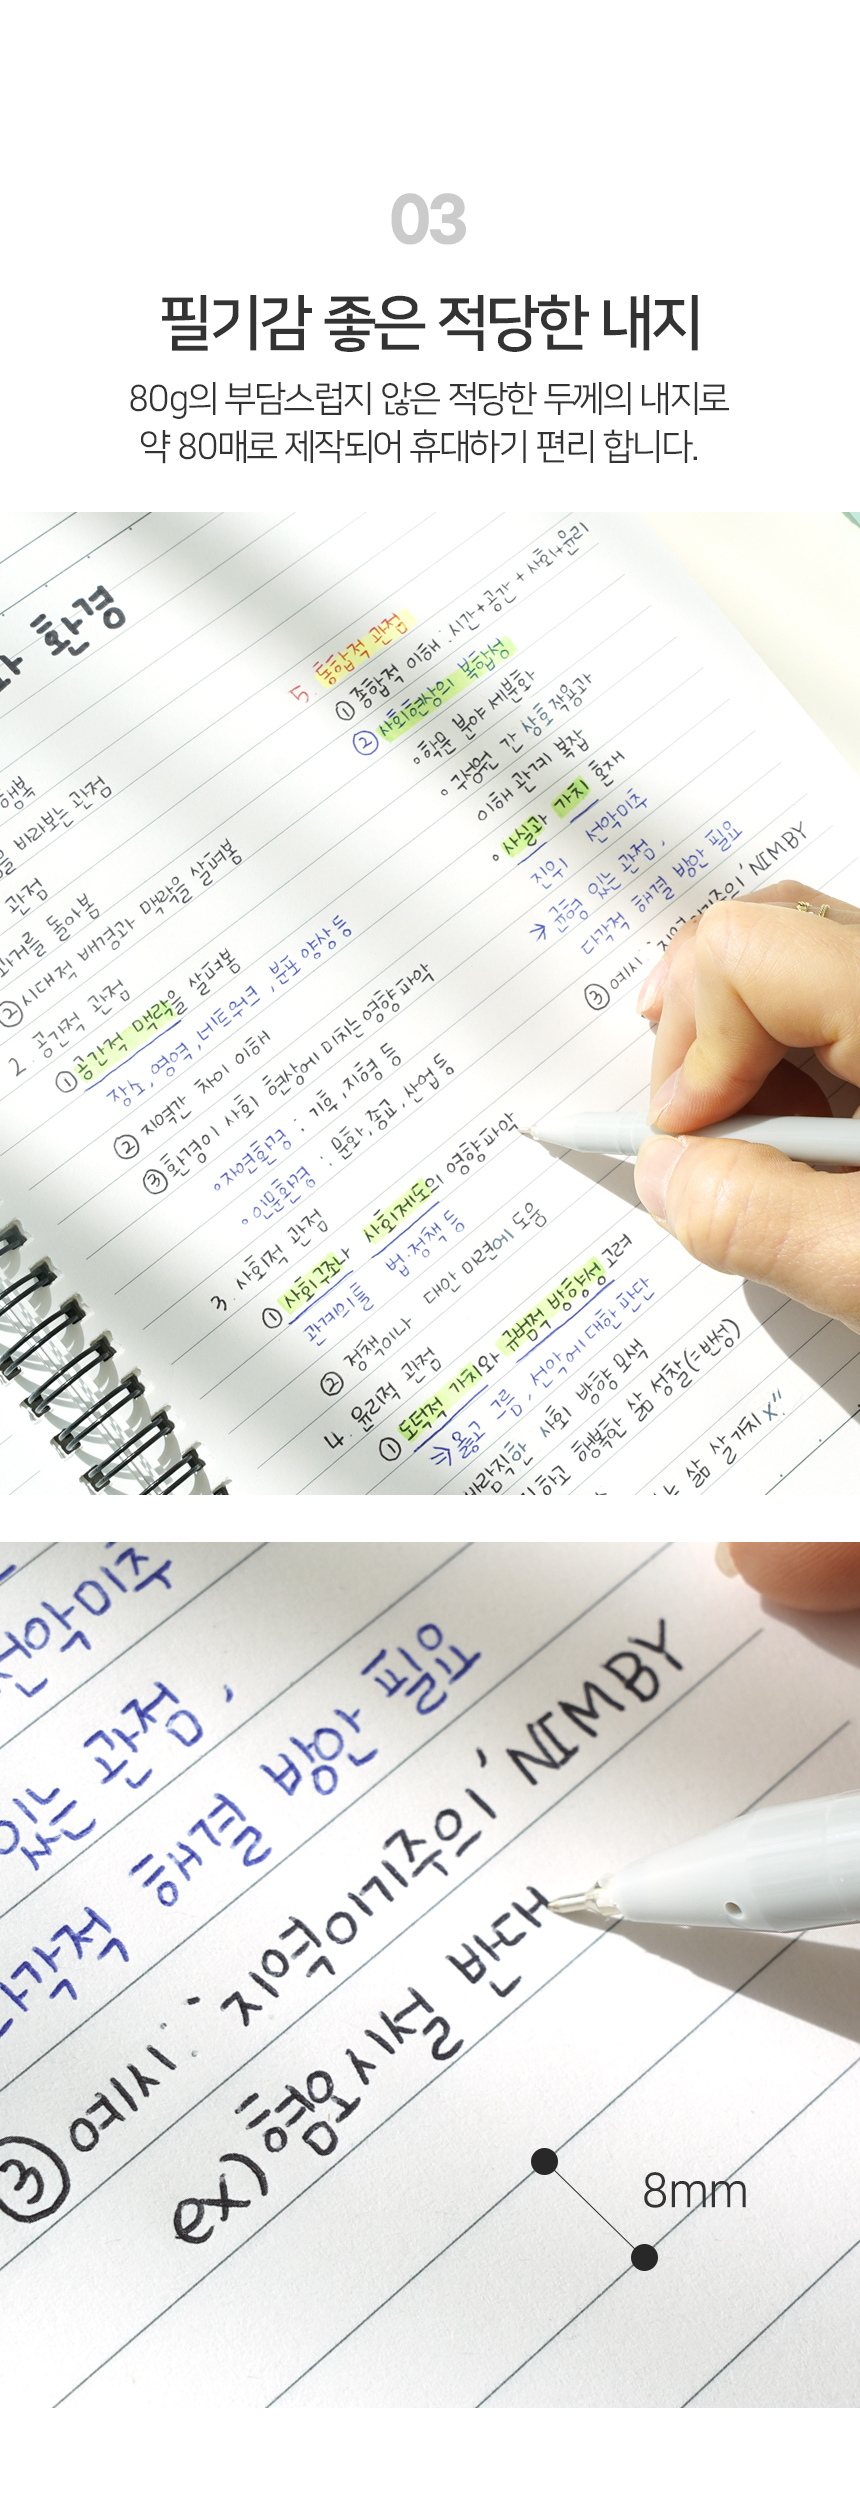 03
필기감 좋은 적당한 내지
80g의 부담스럽지 않은 적당한 두께의 내지로
약 80매로 제작되어 휴대하기 편리 합니다.
환경
행복
을 바라보는 관점
관점
과거를 돌아봄
② 시대적 배경과 맥락을 살펴봄
2. 공간적 관점
① 공간적 맥락을 살펴봄
장소, 영역, 네트워크, 분포 양상 등
② 지역간 차이 이해
③ 환경이 사회 현상에 미치는 영향 파악
∘자연환경 : 기후, 지형 등
∘인문환경 : 문화, 종교, 산업 등
3. 사회적 관점
① 사회구조나 사회제도의 영향 파악
관계의 틀 법·정책 등
② 정책이나 대안 마련에 도움
4. 윤리적 관점
① 도덕적 가치와 규범적 방향성 고려
⇒ 옳고 그름, 선악에 대한 판단
바람직한 사회 방향 모색
하고 행복한 삶 성찰(=반성)
는 삶 살 가치 X"
5. 통합적 관점
① 종합적 이해 : 시간+공간 + 사회+윤리
② 사회현상의 복합성
∘학문 분야 세분화
∘구성원 간 상호작용과
이해 관계 복잡
∘사실과 가치 혼재
진위 선악미추
⇒ 균형 있는 관점,
다각적 해결 방안 필요
③ 예시 : 지역이기주의 'NIMBY
선악미추
있는 관점,
다각적 해결 방안 필요
③ 예시 : 지역이기주의 'NIMBY
ex) 혐오시설 반대
8mm